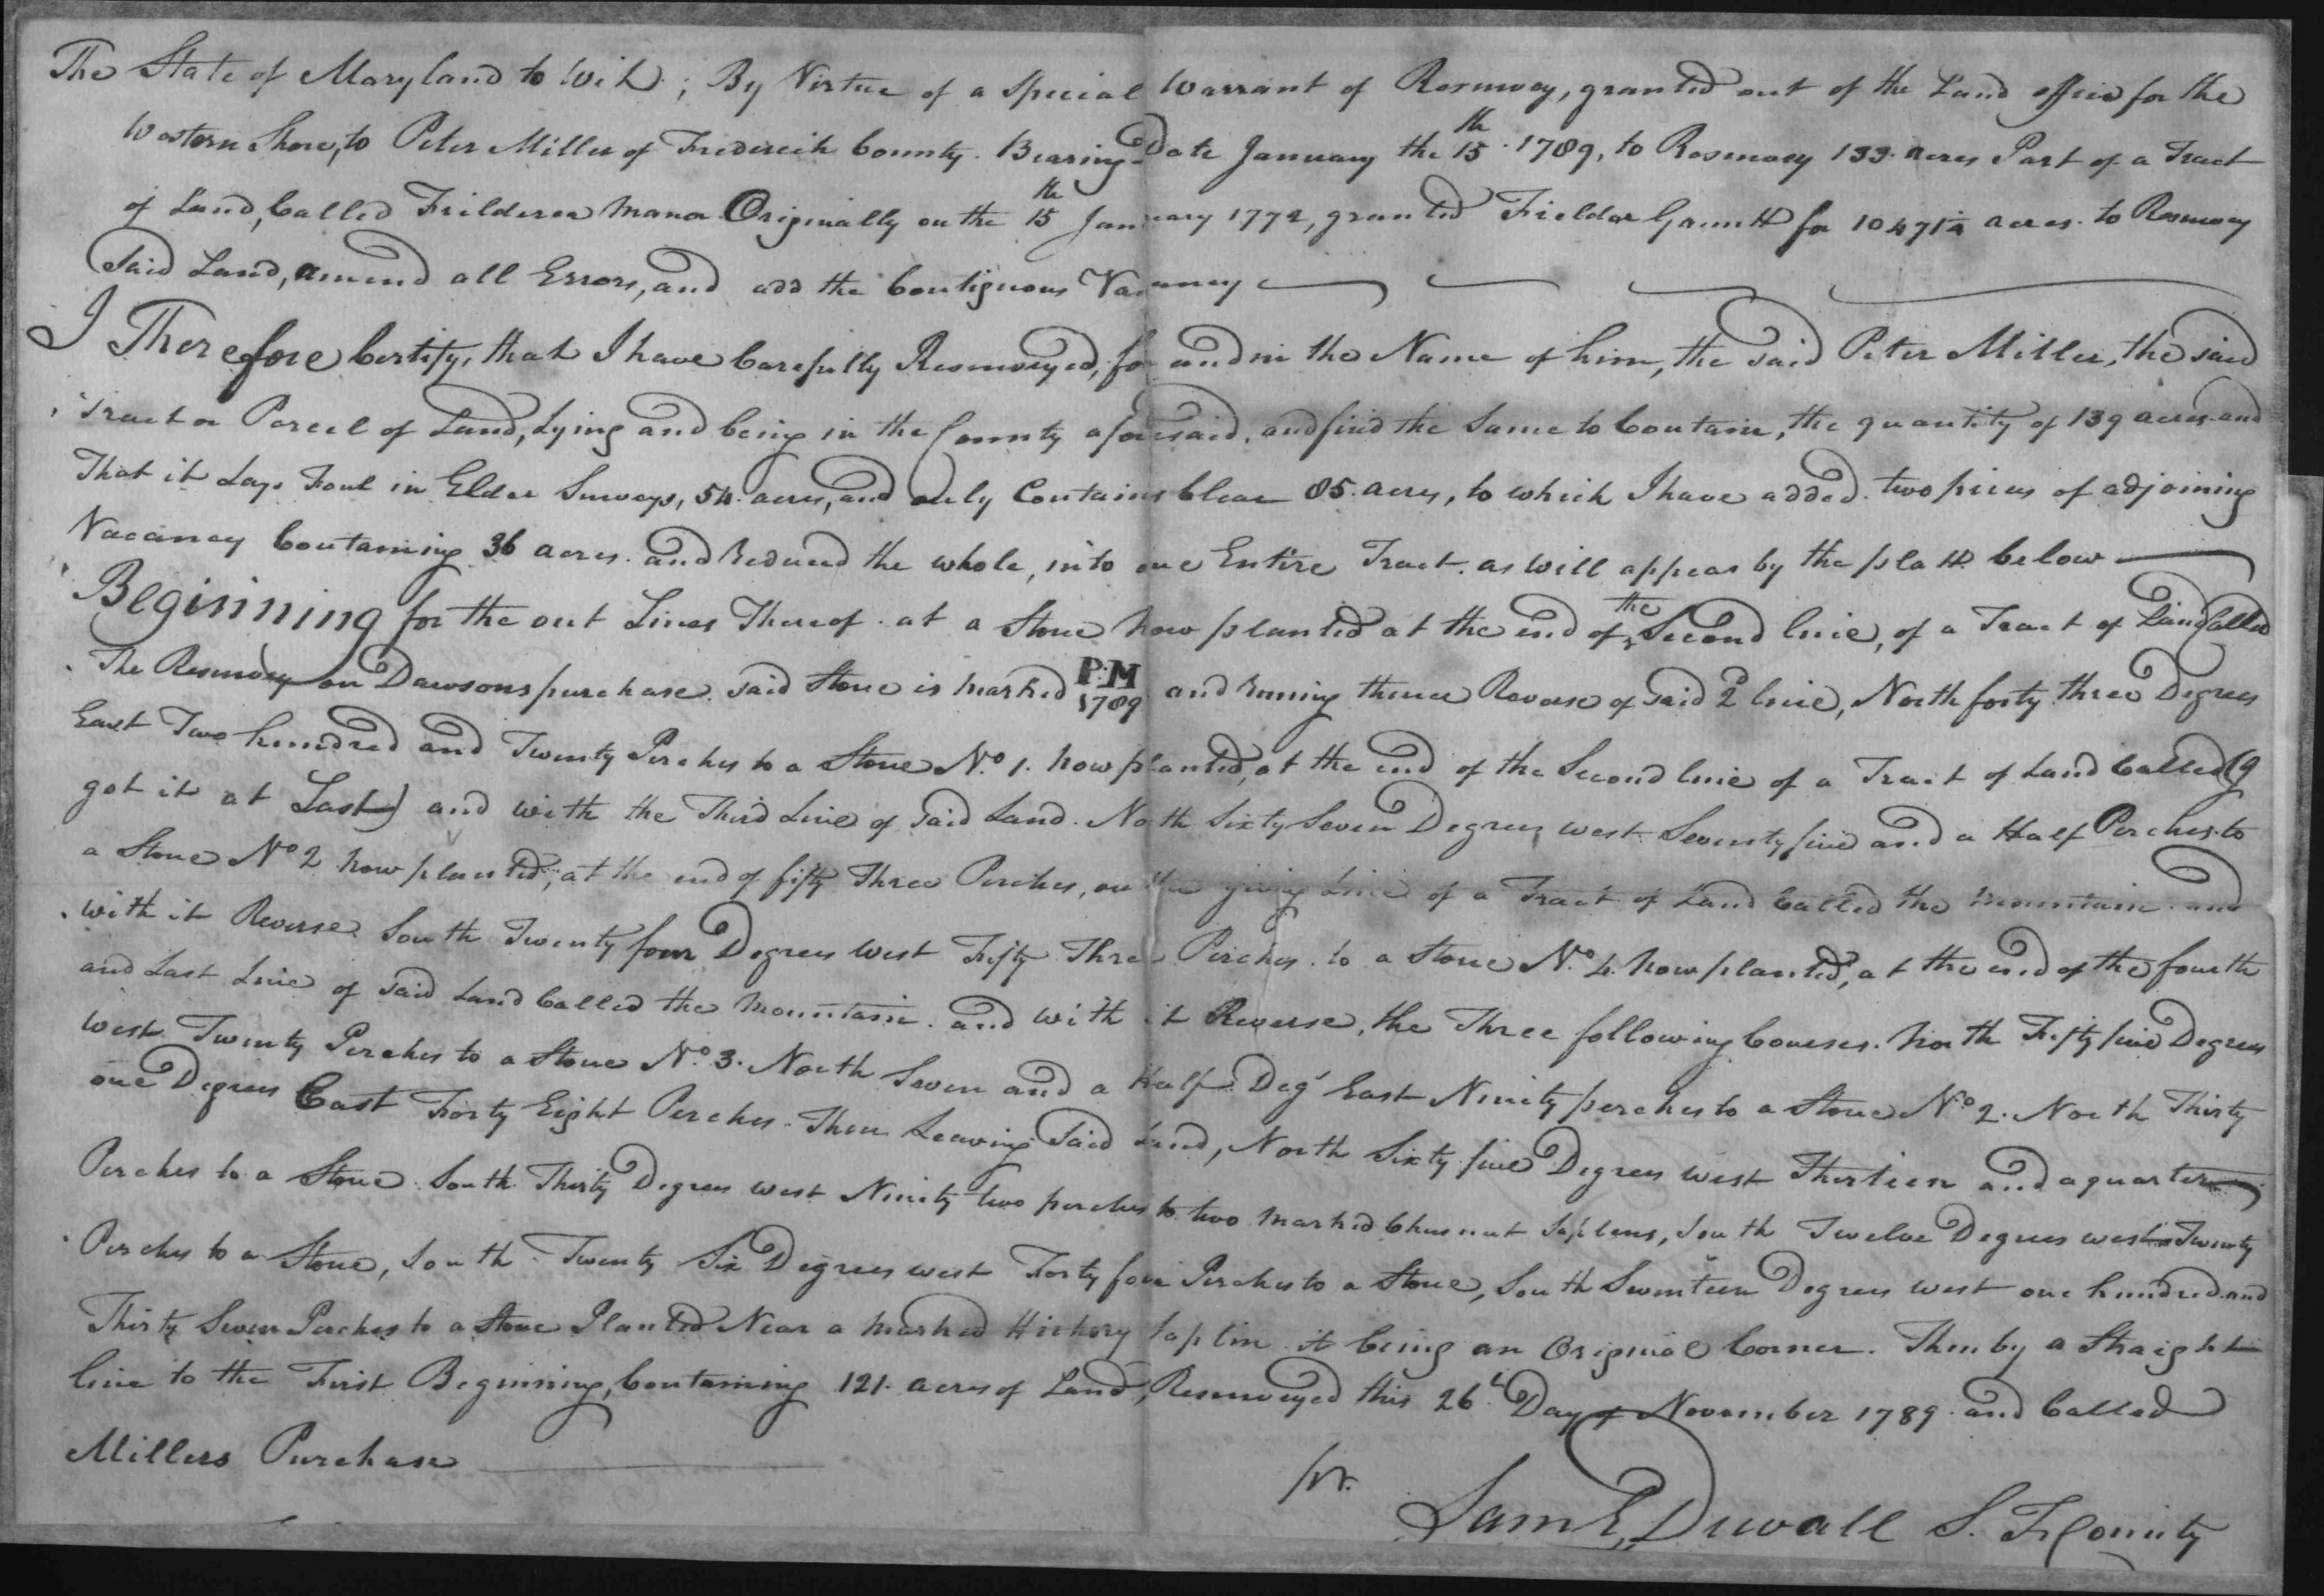 The State of Maryland to Wit; By Virtue of a Special Warrant of Resurvey, granted out of the Land office for the
Western Shore, to Peter Miller of Frederick County. Bearing Date January the 15th. 1789, to Resurvey 139. acres Part of a Tract
of Land, Called Fielderea Manor Originally on the 15th January 1772, granted Fielder Gauntt for 10471½ acres. to Resurvey
Said Land, amend all Errors, and add the Contiguous Vacancy
I Therefore Certify, that I have Carefully Resurveyed, for and in the Name of him, the said Peter Miller, the said
Tract or Parcel of Land, Lying and being in the County aforesaid, and find the Same to Contain, the quantity of 139 acres and
That it Lays Foul in Elder Surveys, 54. acres, and only Contains Clear 85. acres, to which I have added. two pieces of adjoining
Vacancy Containing 36 acres. and Reduced the whole, into one Entire Tract. as will appear by the platt below
Beginning for the out Lines Thereof. at a Stone now planted at the end of the Second line, of a Tract of Land Called
The Resurvey on Dawsons purchase. Said Stone is marked P:M 1789 and runing thence Reverse of said 2d line, North forty three Degrees
East Two hundred and Twenty Perches to a Stone No. 1. now planted, at the end of the Second line of a Tract of Land Called (I
got it at Last) and with the Third Line of Said Land. North Sixty Seven Degrees west Seventy five and a Half Perches to
a Stone No 2 now planted, at the end of fifty Three Perches, on the Line of a Tract of Land Called the mountain and
with it Reverse South Twenty four Degrees West Fifty Three Perches. to a Stone No. 4. now planted, at the end of the fourth
and Last Line of said Land Called the mountain. and with it Reverse, the Three following Courses. North Fifty five Degrees
west Twenty Perches to a Stone No. 3. North Seven and a Half Degs East Ninety perches to a Stone No 2. North Thirty
one Degrees East Forty Eight Perches. Then Leaving Said Land, North Sixty five Degrees west Thirteen and a quarter
Perches to a Stone South Thirty Degrees west Ninety two perches to two marked Chesnut Saplens, South Twelve Degrees west Twenty
Perches to a Stone, South Twenty Six Degrees west Forty four Perches to a Stone, South Seventeen Degrees West one hundred and
Thirty Seven Perches to a Stone Planted Near a marked Hickory Saplin it being an Original Corner. Then by a Straight
line to the First Beginning, Containing 121. acres of Land, Resurveyed this 26th Day of November 1789. and Called
Millers Purchase
pr.
Saml. Duvall S. F. County